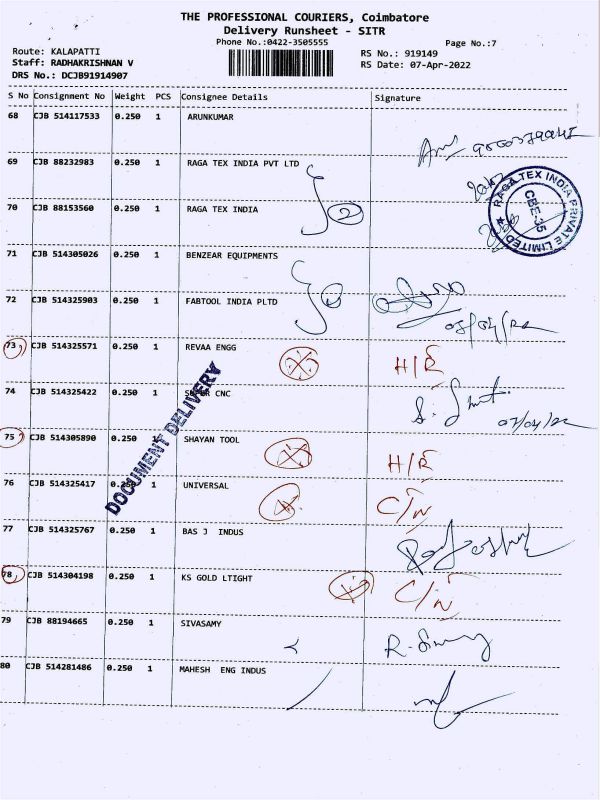 THE PROFESSIONAL COURIERS, Coimbatore
Delivery Runsheet - SITR
Phone No.:0422-3505555
Page No.:7
Route: KALAPATTI
Staff: RADHAKRISHNAN V
DRS No.: DCJB91914907
RS No.: 919149
RS Date: 07-Apr-2022
S No Consignment No Weight PCS Consignee Details Signature
68 CJB 514117533 0.250 1 ARUNKUMAR
69 CJB 88232983 0.250 1 RAGA TEX INDIA PVT LTD
70 CJB 88153560 0.250 1 RAGA TEX INDIA 2
RAGA TEX INDIA PRIVATE LIMITED ★
CBE-35
71 CJB 514305026 0.250 1 BENZEAR EQUIPMENTS
72 CJB 514325903 0.250 1 FABTOOL INDIA PLTD
73 CJB 514325571 0.250 1 REVAA ENGG H/R
74 CJB 514325422 0.250 1 SUPER CNC
07/04/22
75 CJB 514305890 0.250 1 SHAYAN TOOL H/R
DOCUMENT DELIVERY
76 CJB 514325417 0.250 1 UNIVERSAL C/N
77 CJB 514325767 0.250 1 BAS J INDUS
78 CJB 514304198 0.250 1 KS GOLD LTIGHT C/N
79 CJB 88194665 0.250 1 SIVASAMY
80 CJB 514281486 0.250 1 MAHESH ENG INDUS